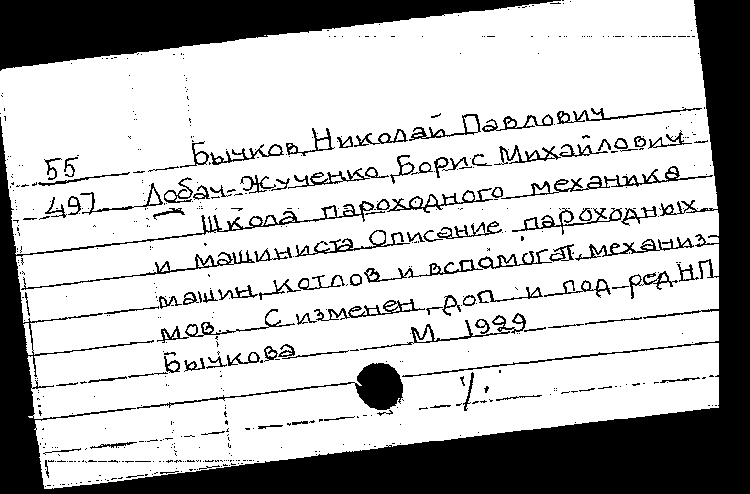 55 Бычков, Николай Павлович
497 Лобач-Жученко, Борис Михайлович
Школа пароходного механика
и машиниста. Описание пароходных
машин, котлов и вспомогат. механиз-
мов. С изменен., доп. и под ред. Н.П.
Бычкова М. 1929